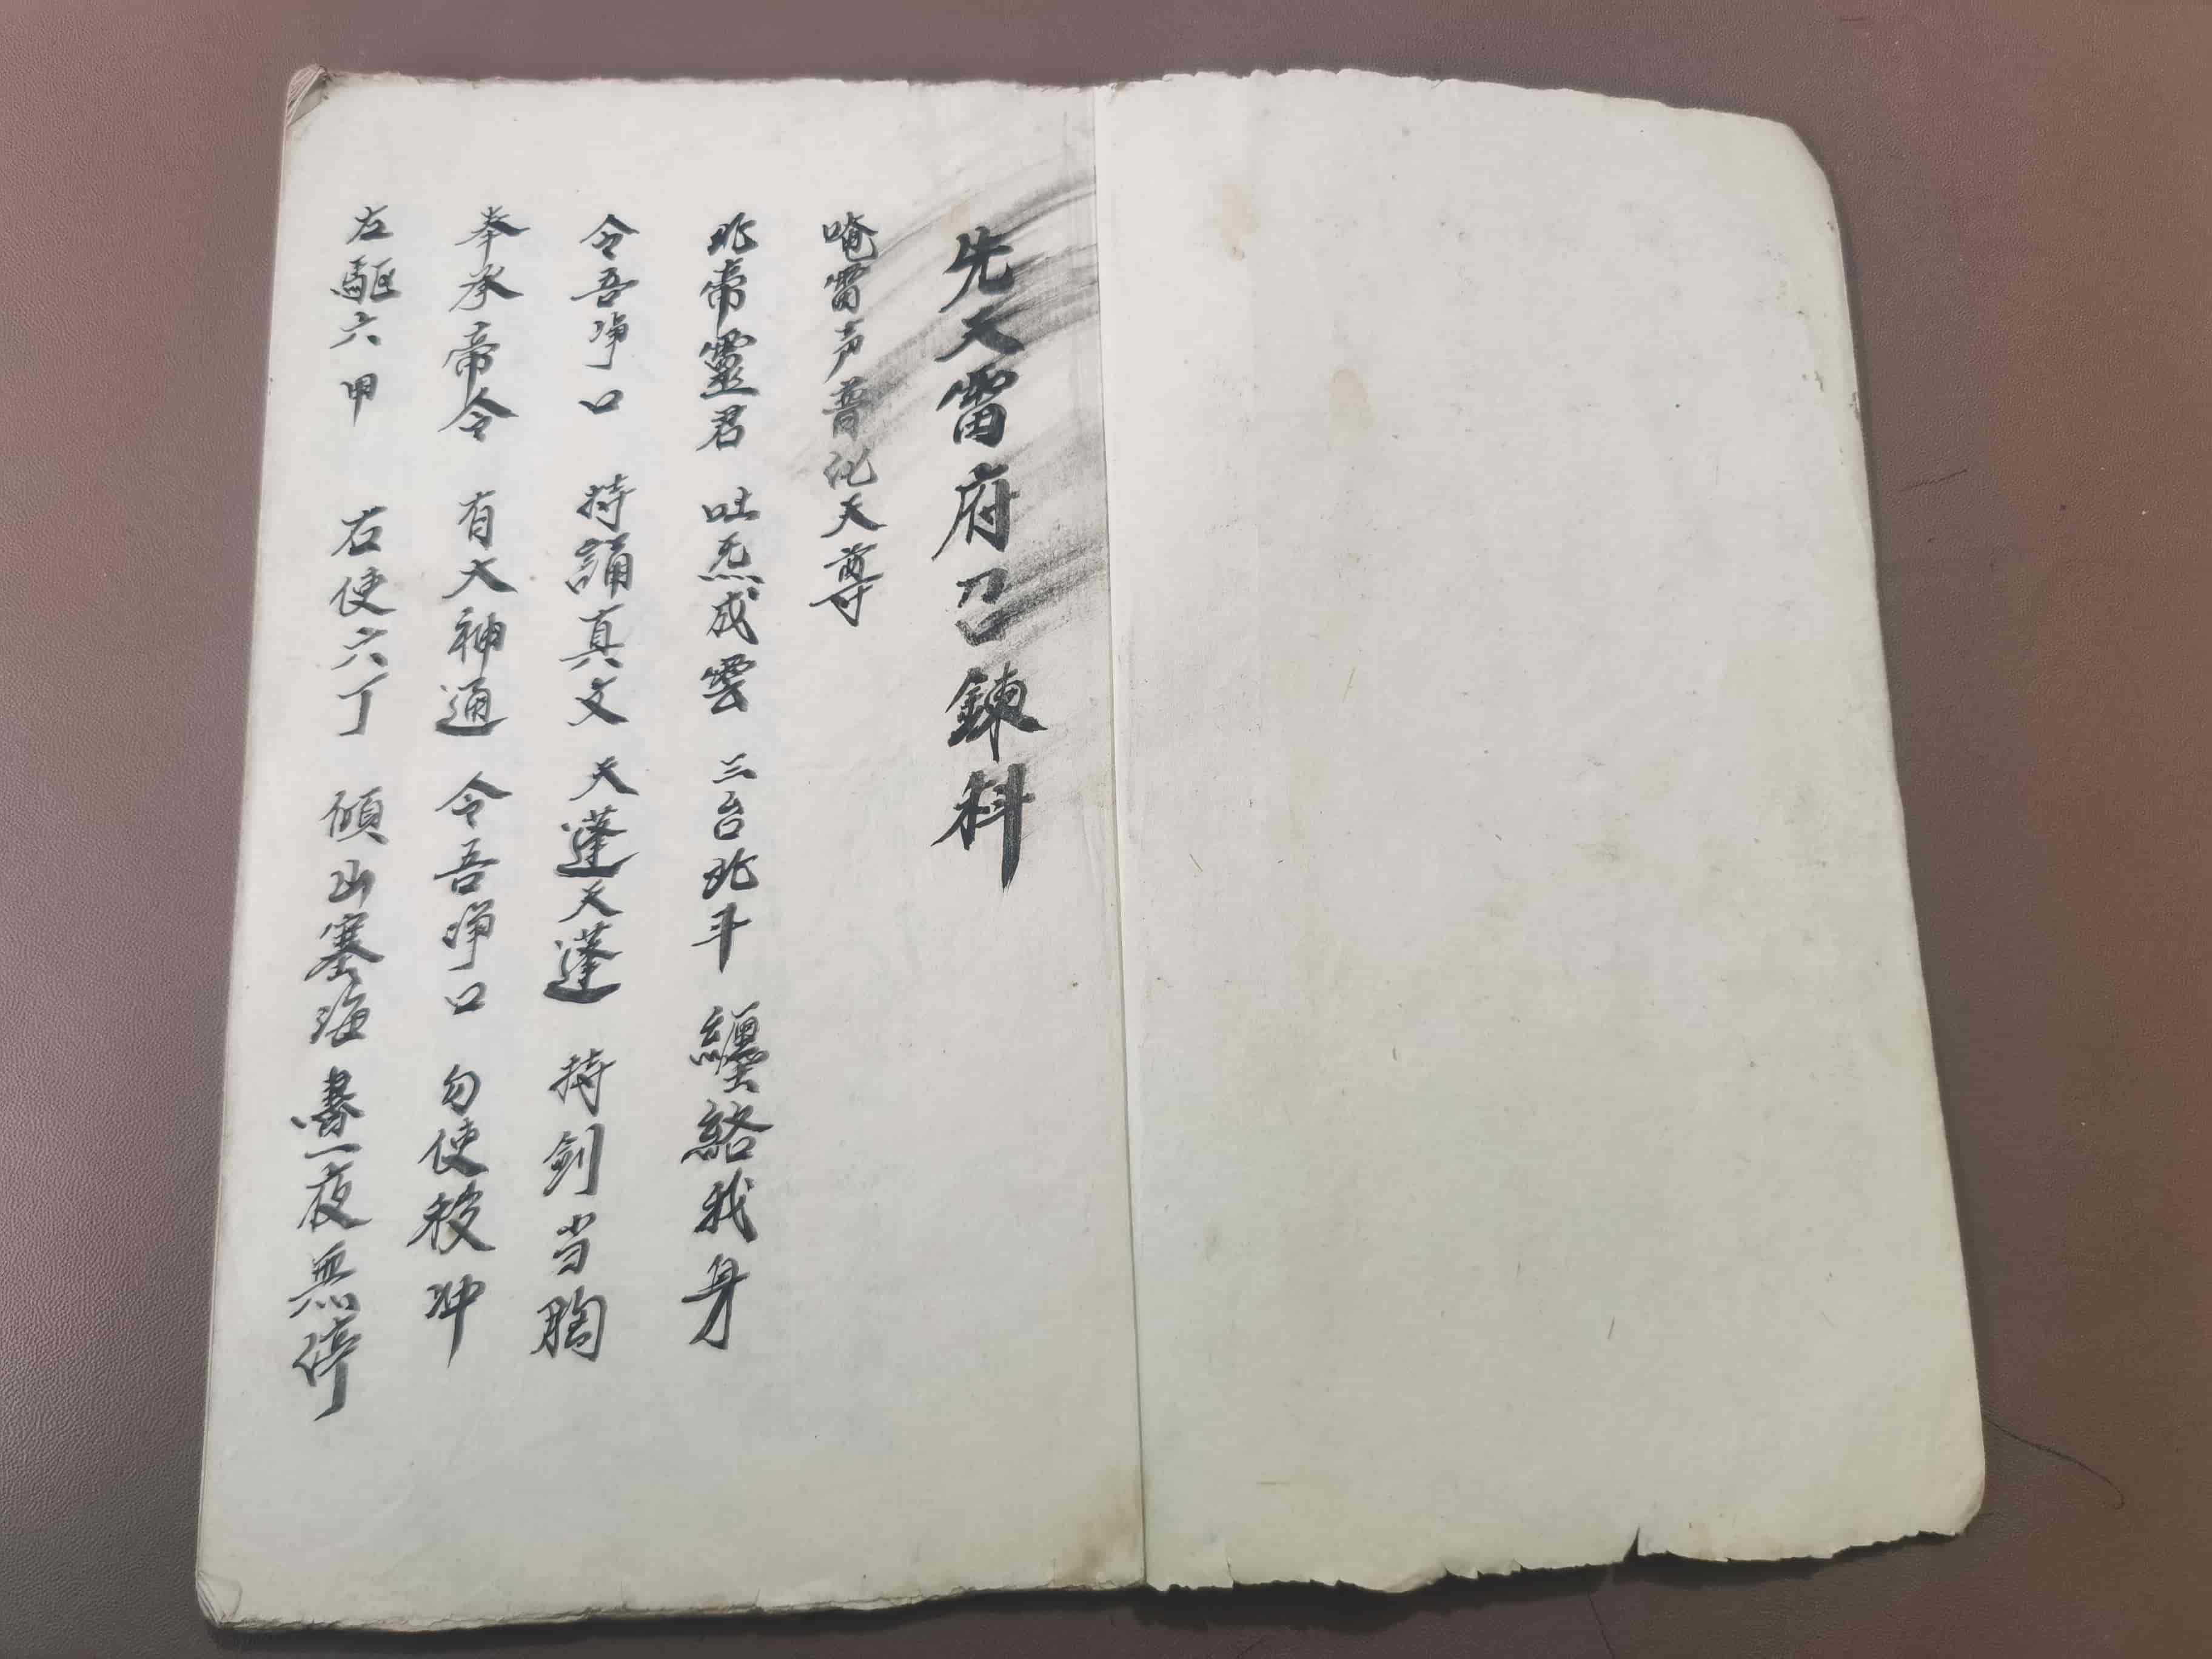 先天雷府召鍊科
唵雷声普化天尊
北帝靈君 吐炁成雲 三台北斗 纏絡我身
令吾净口 持誦真文 天蓬天蓬 持剑当胸
奉承帝令 有大神通 令吾净口 勿使 冲
左驅六甲 右使六丁 傾山塞海 晝夜無停